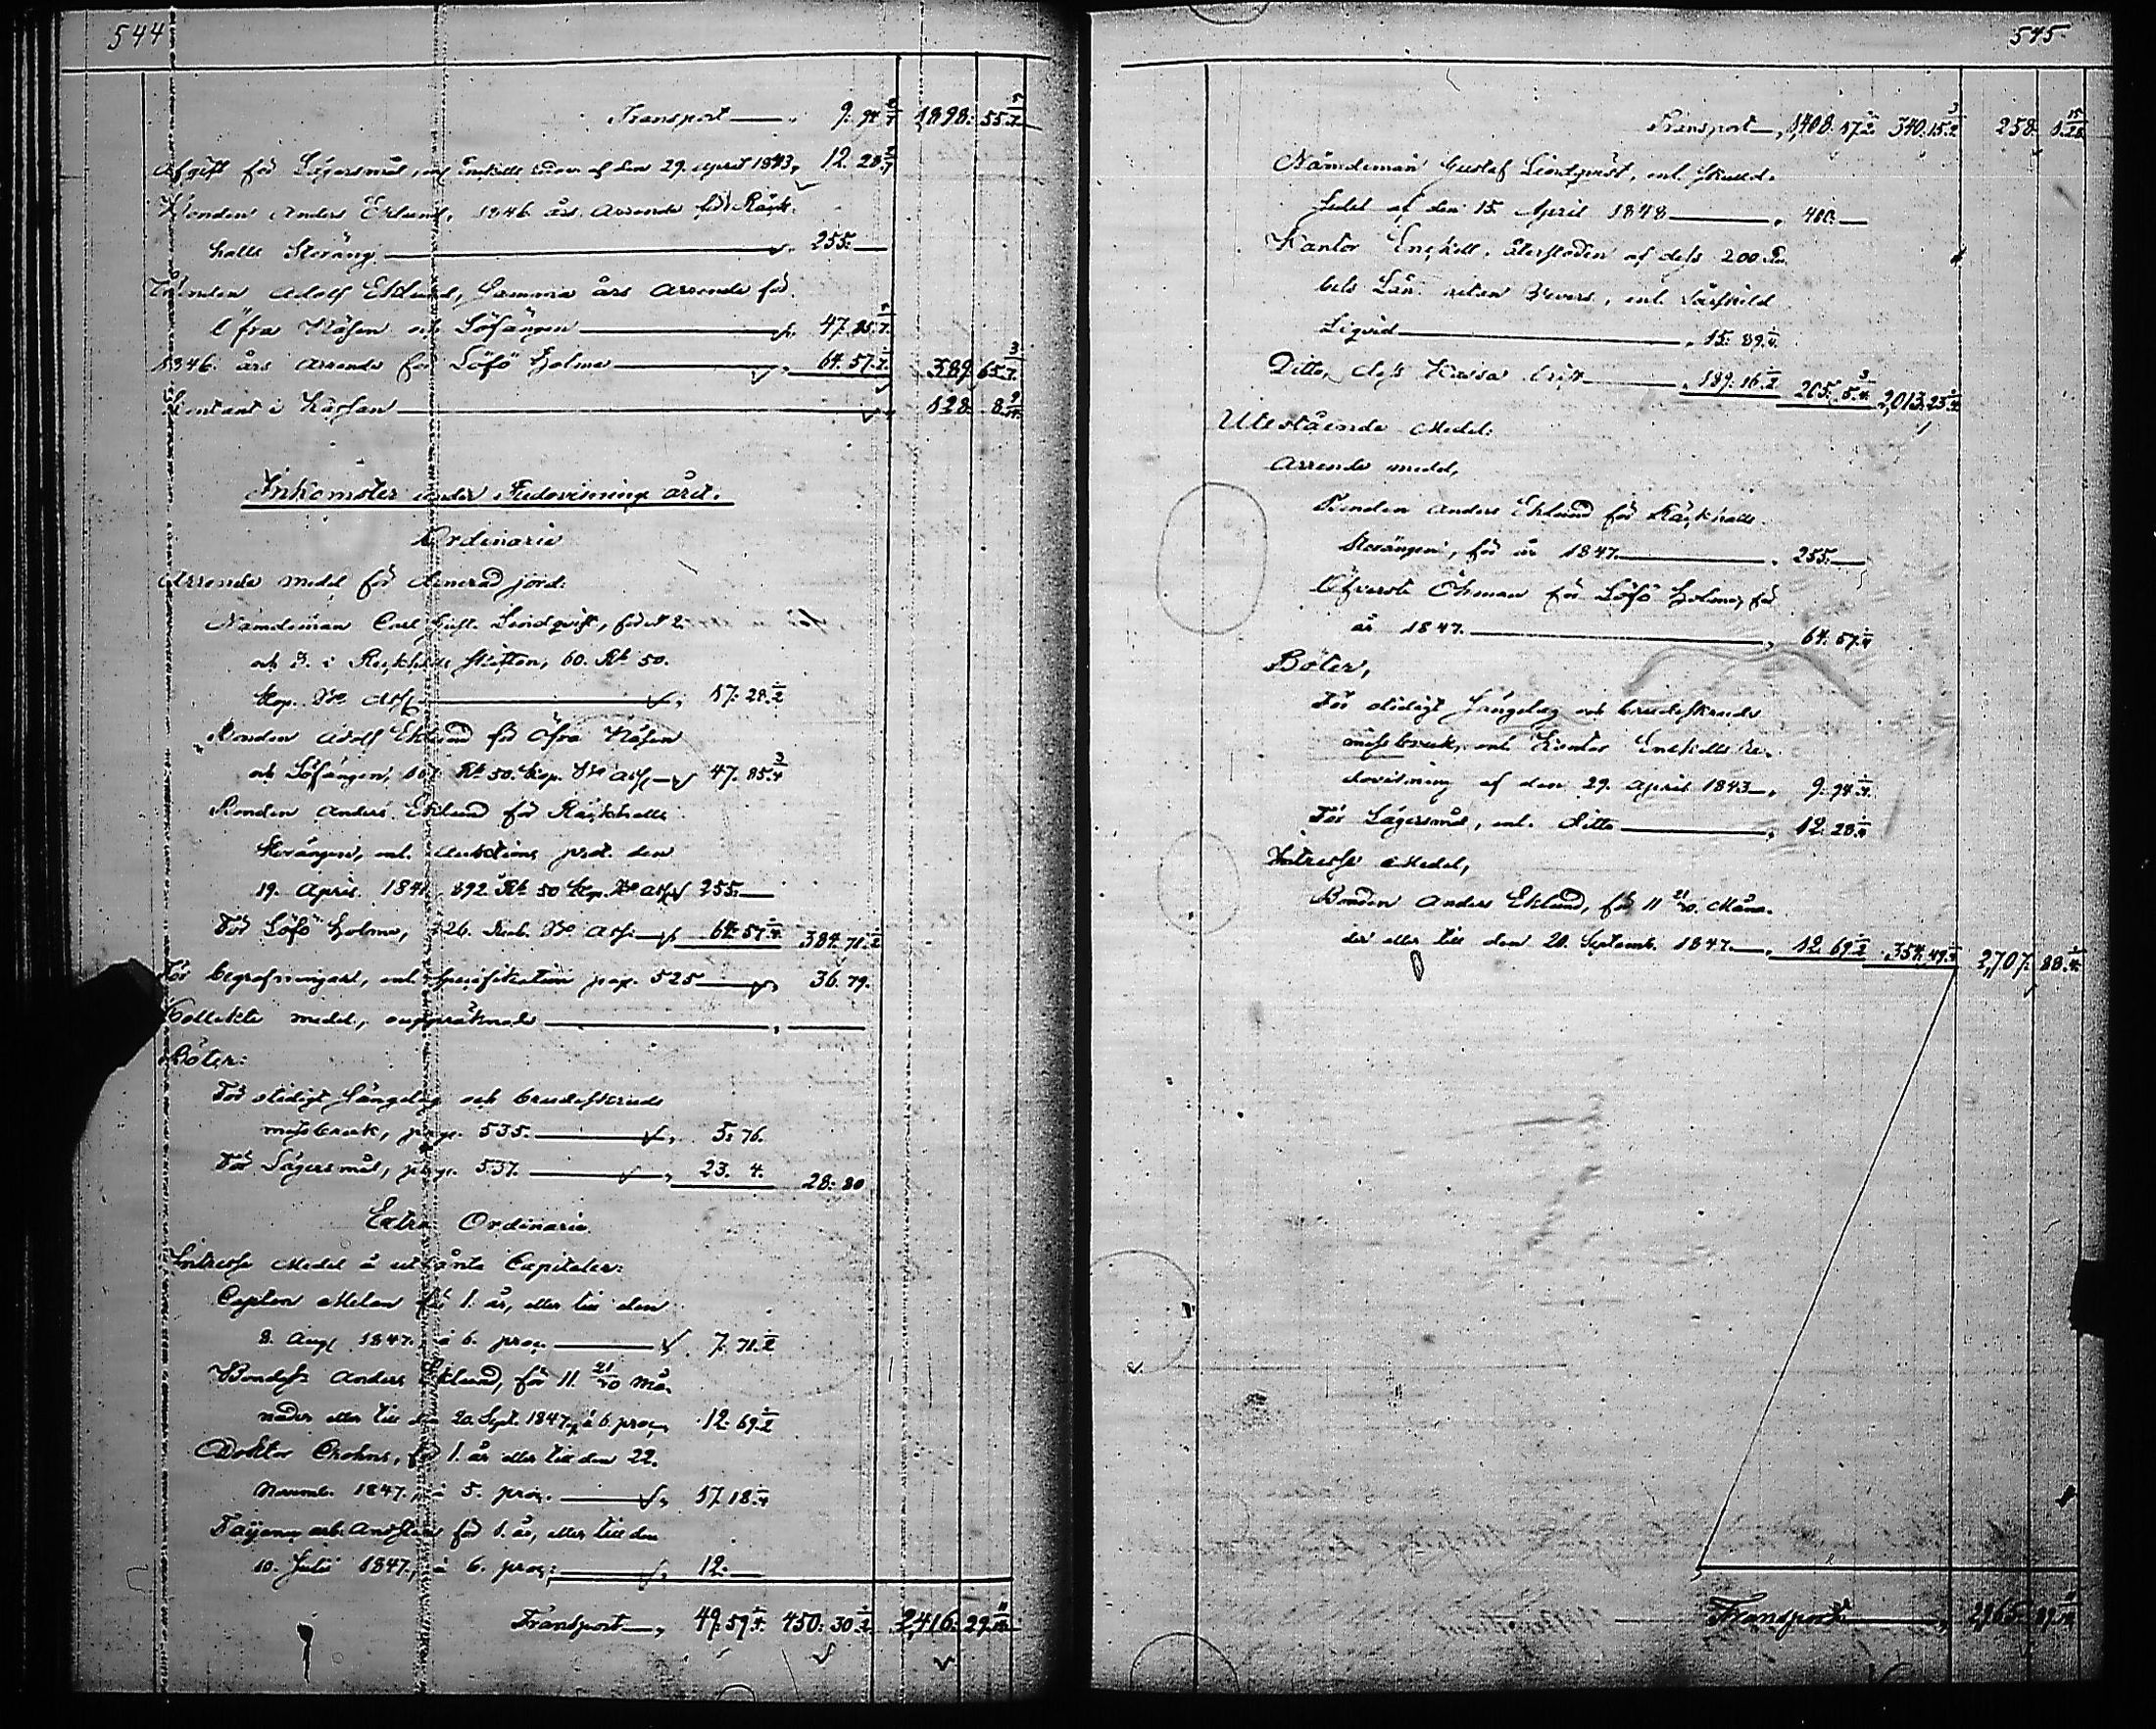 544
Transport — 9. 94 1898. 55
Afgift för Lägersmål, enl. Enckells redov. af den 29. April 1843, 12. 28
Bonden Anders Eklund, 1846 års Arrende för Räck-
halls Storäng — 255. —
Bonden Adolf Eklund, samma års Arrende för
Öfra Näsen och Löfängen — 47. 85
1846. års Arrende för Löfö Holme — 64. 57 389. 65
Contant i Kassan — 128. 8
Inkomster under Redovisning året.
Ordinarie
Arrende medel för Arrenderad jord:
Nämdeman Carl Gust. Lindqvist, för N 2.
och 3. i Räckhalls skiften, 60. Rb 50.
kop. B:co Ass. — 17. 28 1/2
Bonden Adolf Eklund för Öfra Näsen
och Löfängen, 167 Rb 50. kop. B:co Ass — 47. 85 3/4
Bonden Anders Eklund för Räckhalls
Storängen, enl. Auktions prot. den
19. April 1841, 892. Rb 50 kop. B:co Ass 255. —
För Löfö Holme, 226. Rub. B:co Ass. — 64. 57 1/4 384. 71 1/2
För begrafningar, enl. Specifikation pag. 525 — 36. 79.
Collekte medel, ouppräknade —
Böter:
För olidigt Sängelag och brudeskruds
missbruk, pag. 535. — 5. 76.
För Lägersmål, pag. 537. — 23. 4. 28. 80
Extra Ordinarie
Intresse Medel å utlånta Capitaler:
Capten Melan för 1. år, eller till den
8. Aug 1847. à 6. proc. — 7. 71 1/2
Bonden Anders Eklund, för 11. 21/30 må-
nader eller till den 20. Sept. 1847, à 6. proc. 12. 69 1/2
Doktor Crohns, för 1. år eller till den 22.
Novemb. 1847., à 5. proc. — 17. 18 1/4
för 1. år, eller till den
10. Juli 1847., à 6. proc: — 12. —
Transport — 49. 59 1/4 450. 30 1/2 2,416. 29
545
Transport — 1,408. 17 1/2 340. 15 3/4 258. 1 15/28
Nämdeman Gustaf Lindqvist, enl. skuld-
sedel af den 15 April 1848 — 400. —
Kantor Enckell, återstoden af dess 200 Ru-
bels Lån utan Revers, enl. särskild
Liqvid — 15. 89 1/4
Ditto, dess Kassa brist — 189. 16 1/2 205. 5 3/4 2,013. 23 1/4
Utestående Medel:
Arrende medel,
Bonden Anders Eklund för Räckhalls
Storängen, för år 1847. — 255. —
Öfverste Öhman för Löfö Holme, för
år 1847. — 64. 57 1/4
Böter,
För olidigt Sängelag och brudeskruds
missbruk, enl. Kantor Enckells re-
dovisning af den 29. April 1843 — 9. 94 1/4
För Lägersmål, enl. Ditto — 12. 28 1/4
Intresse Medel,
Bonden Anders Eklund, för 11 21/30. Måna-
der eller till den 20. Septemb. 1847 — 12. 69 1/2 354. 49 1/4 2,707. 88 1/4
Transport — 2,965. 89